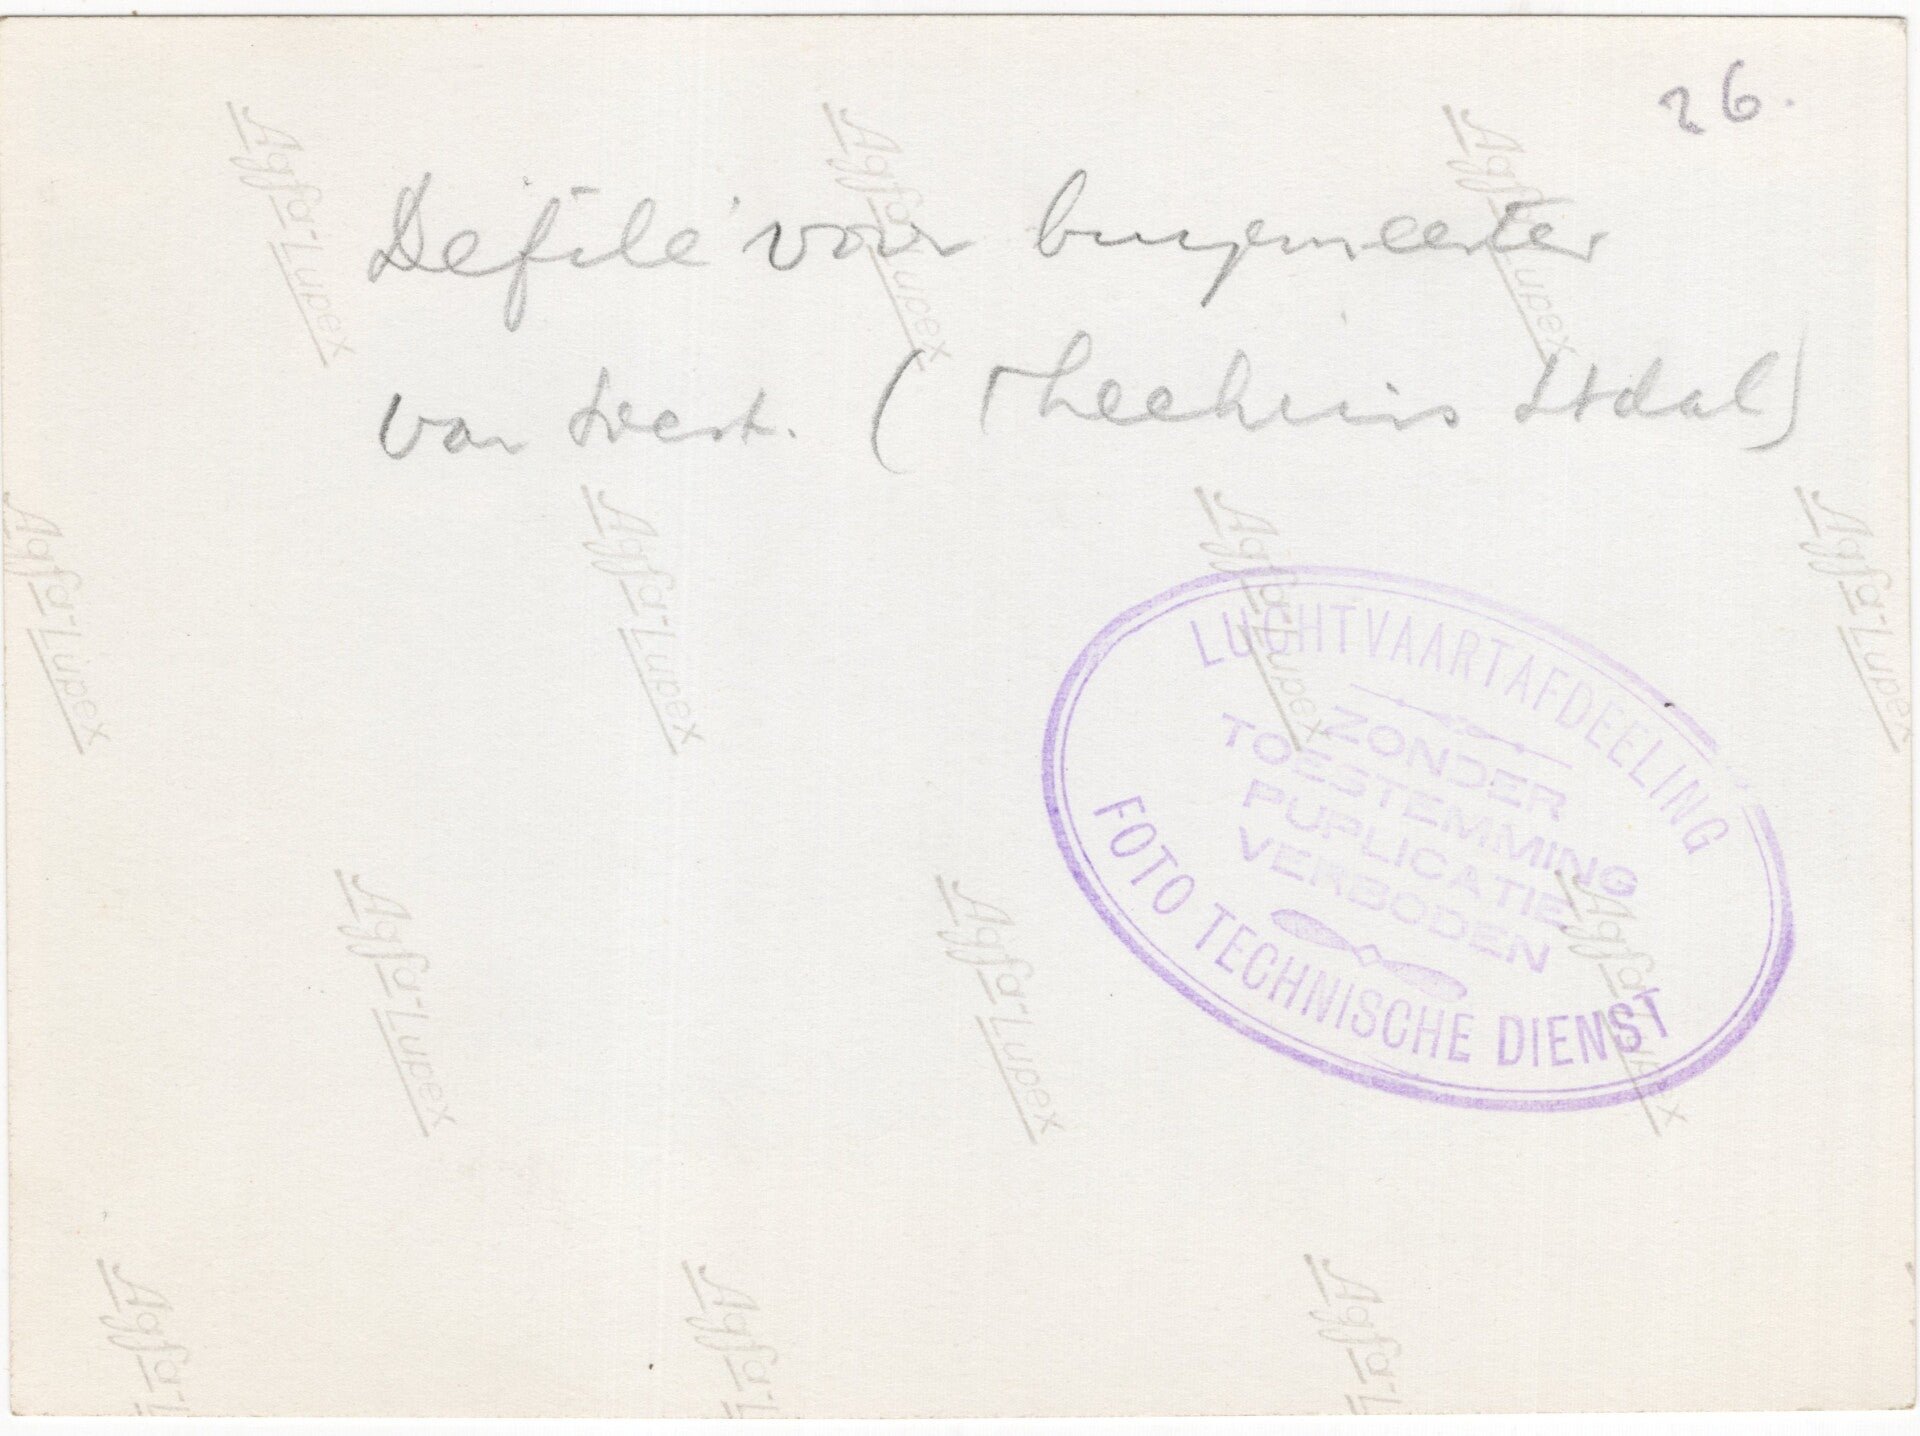 26.
Defilé voor burgemeester
van Soest. (Theehuis Stdal)
LUCHTVAARTAFDEELING
ZONDER
TOESTEMMING
PUPLICATIE
VERBODEN
FOTO TECHNISCHE DIENST
Agfa-Lupex
Agfa-Lupex
Agfa-Lupex
Agfa-Lupex
Agfa-Lupex
Agfa-Lupex
Agfa-Lupex
Agfa-Lupex
Agfa-Lupex
Agfa-Lupex
Agfa-L
Agfa-L
Agfa-L